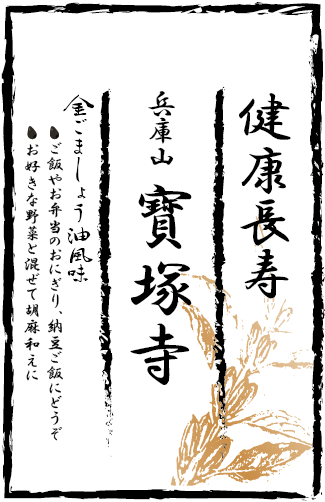 健康長寿
兵庫山 寳塚寺
金ごましょう油風味
●ご飯やお弁当のおにぎり、納豆ご飯にどうぞ
●お好きな野菜と混ぜて胡麻和えに